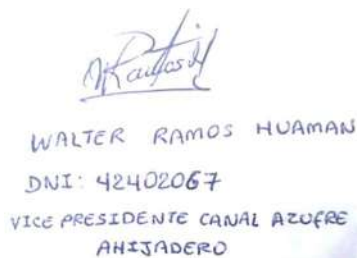 WRamosH
WALTER RAMOS HUAMAN
DNI: 42402067
VICE PRESIDENTE CANAL AZUFRE
AHIJADERO